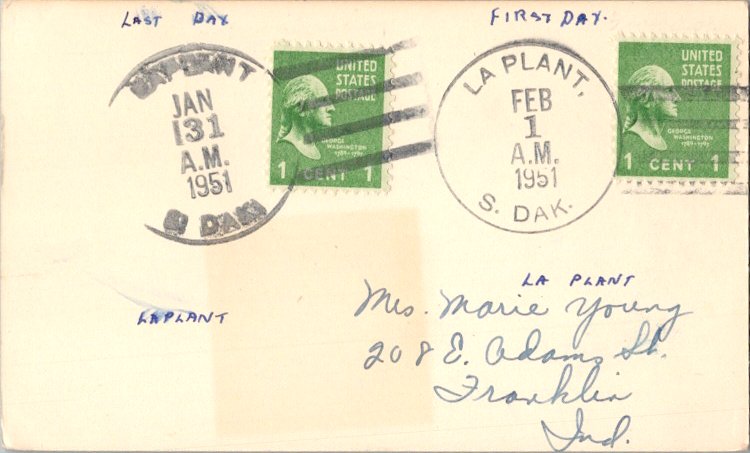 LAST DAY
FIRST DAY.
LAPLANT
JAN
31
A.M.
1951
S DAK
UNITED
STATES
POSTAGE
GEORGE
WASHINGTON
1789-1797
1 CENT 1
LA PLANT,
FEB
1
A.M.
1951
S. DAK.
UNITED
STATES
POSTAGE
GEORGE
WASHINGTON
1789-1797
1 CENT 1
LAPLANT
LA PLANT
Mrs. Marie Young
208 E. Adams St.
Franklin
Ind.